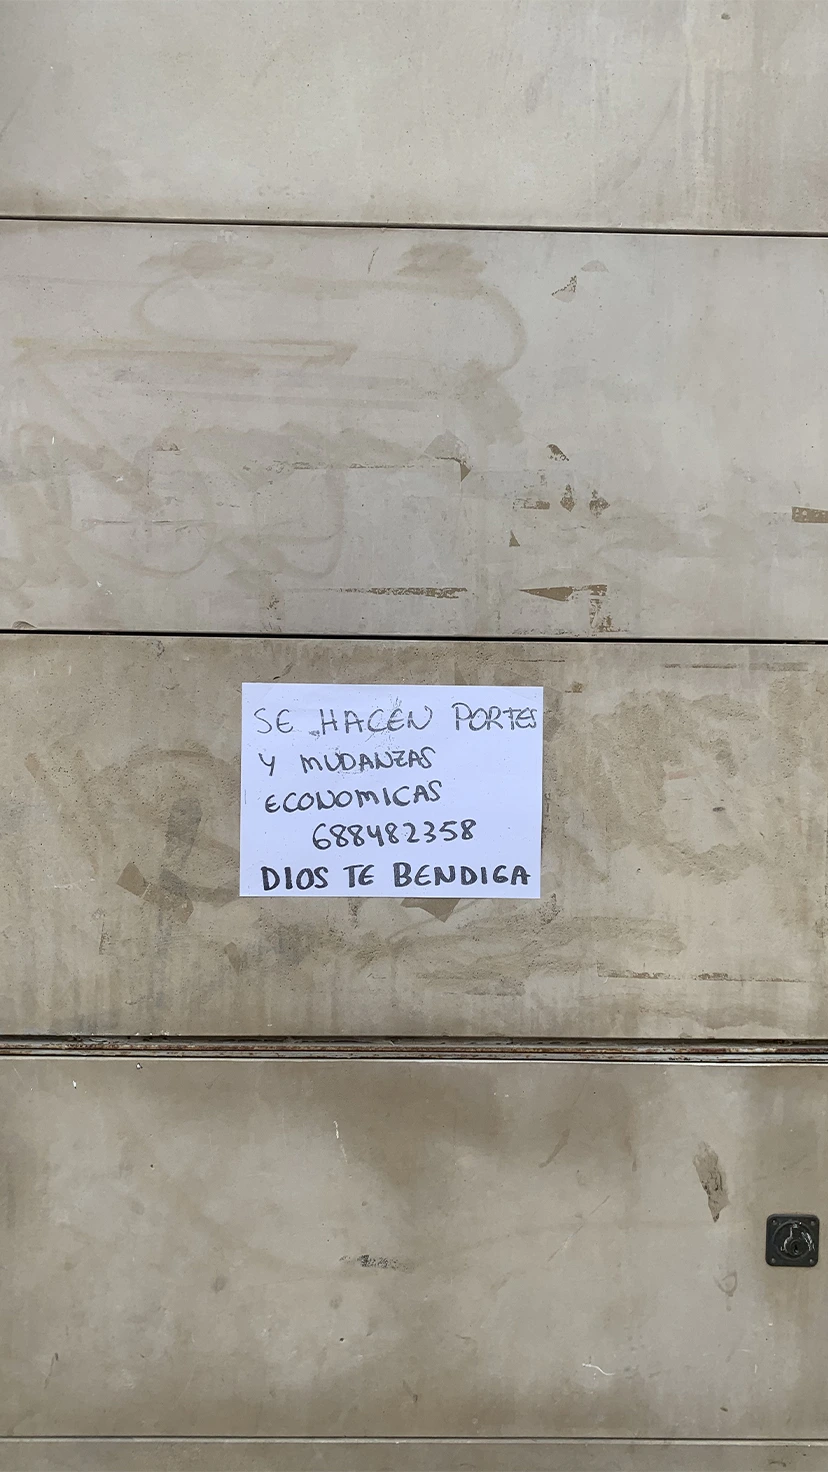 SE HACEN PORTES
Y MUDANZAS
ECONOMICAS
688482358
DIOS TE BENDIGA